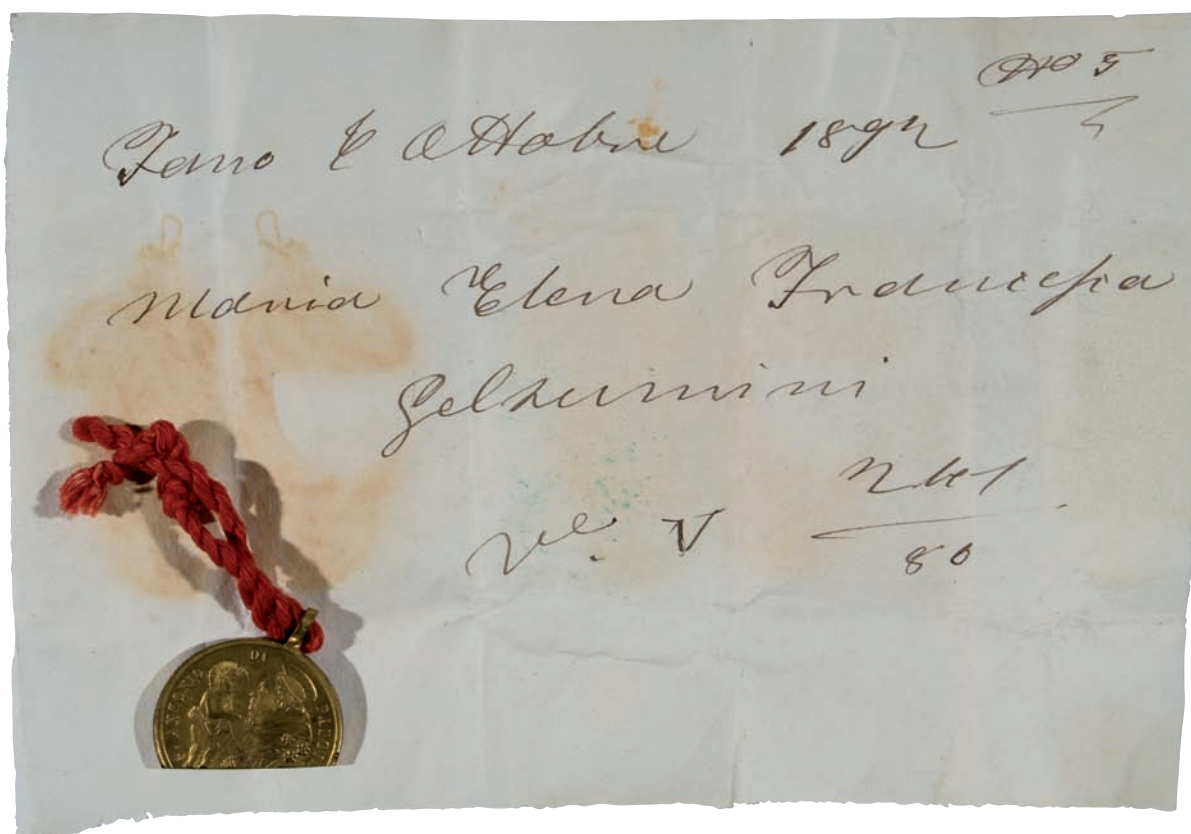 No 5
Fano 6 Ottobre 1892
Maria Elena Francesca
Gelsumini
V
80
S. ANTONIO DI PADOV